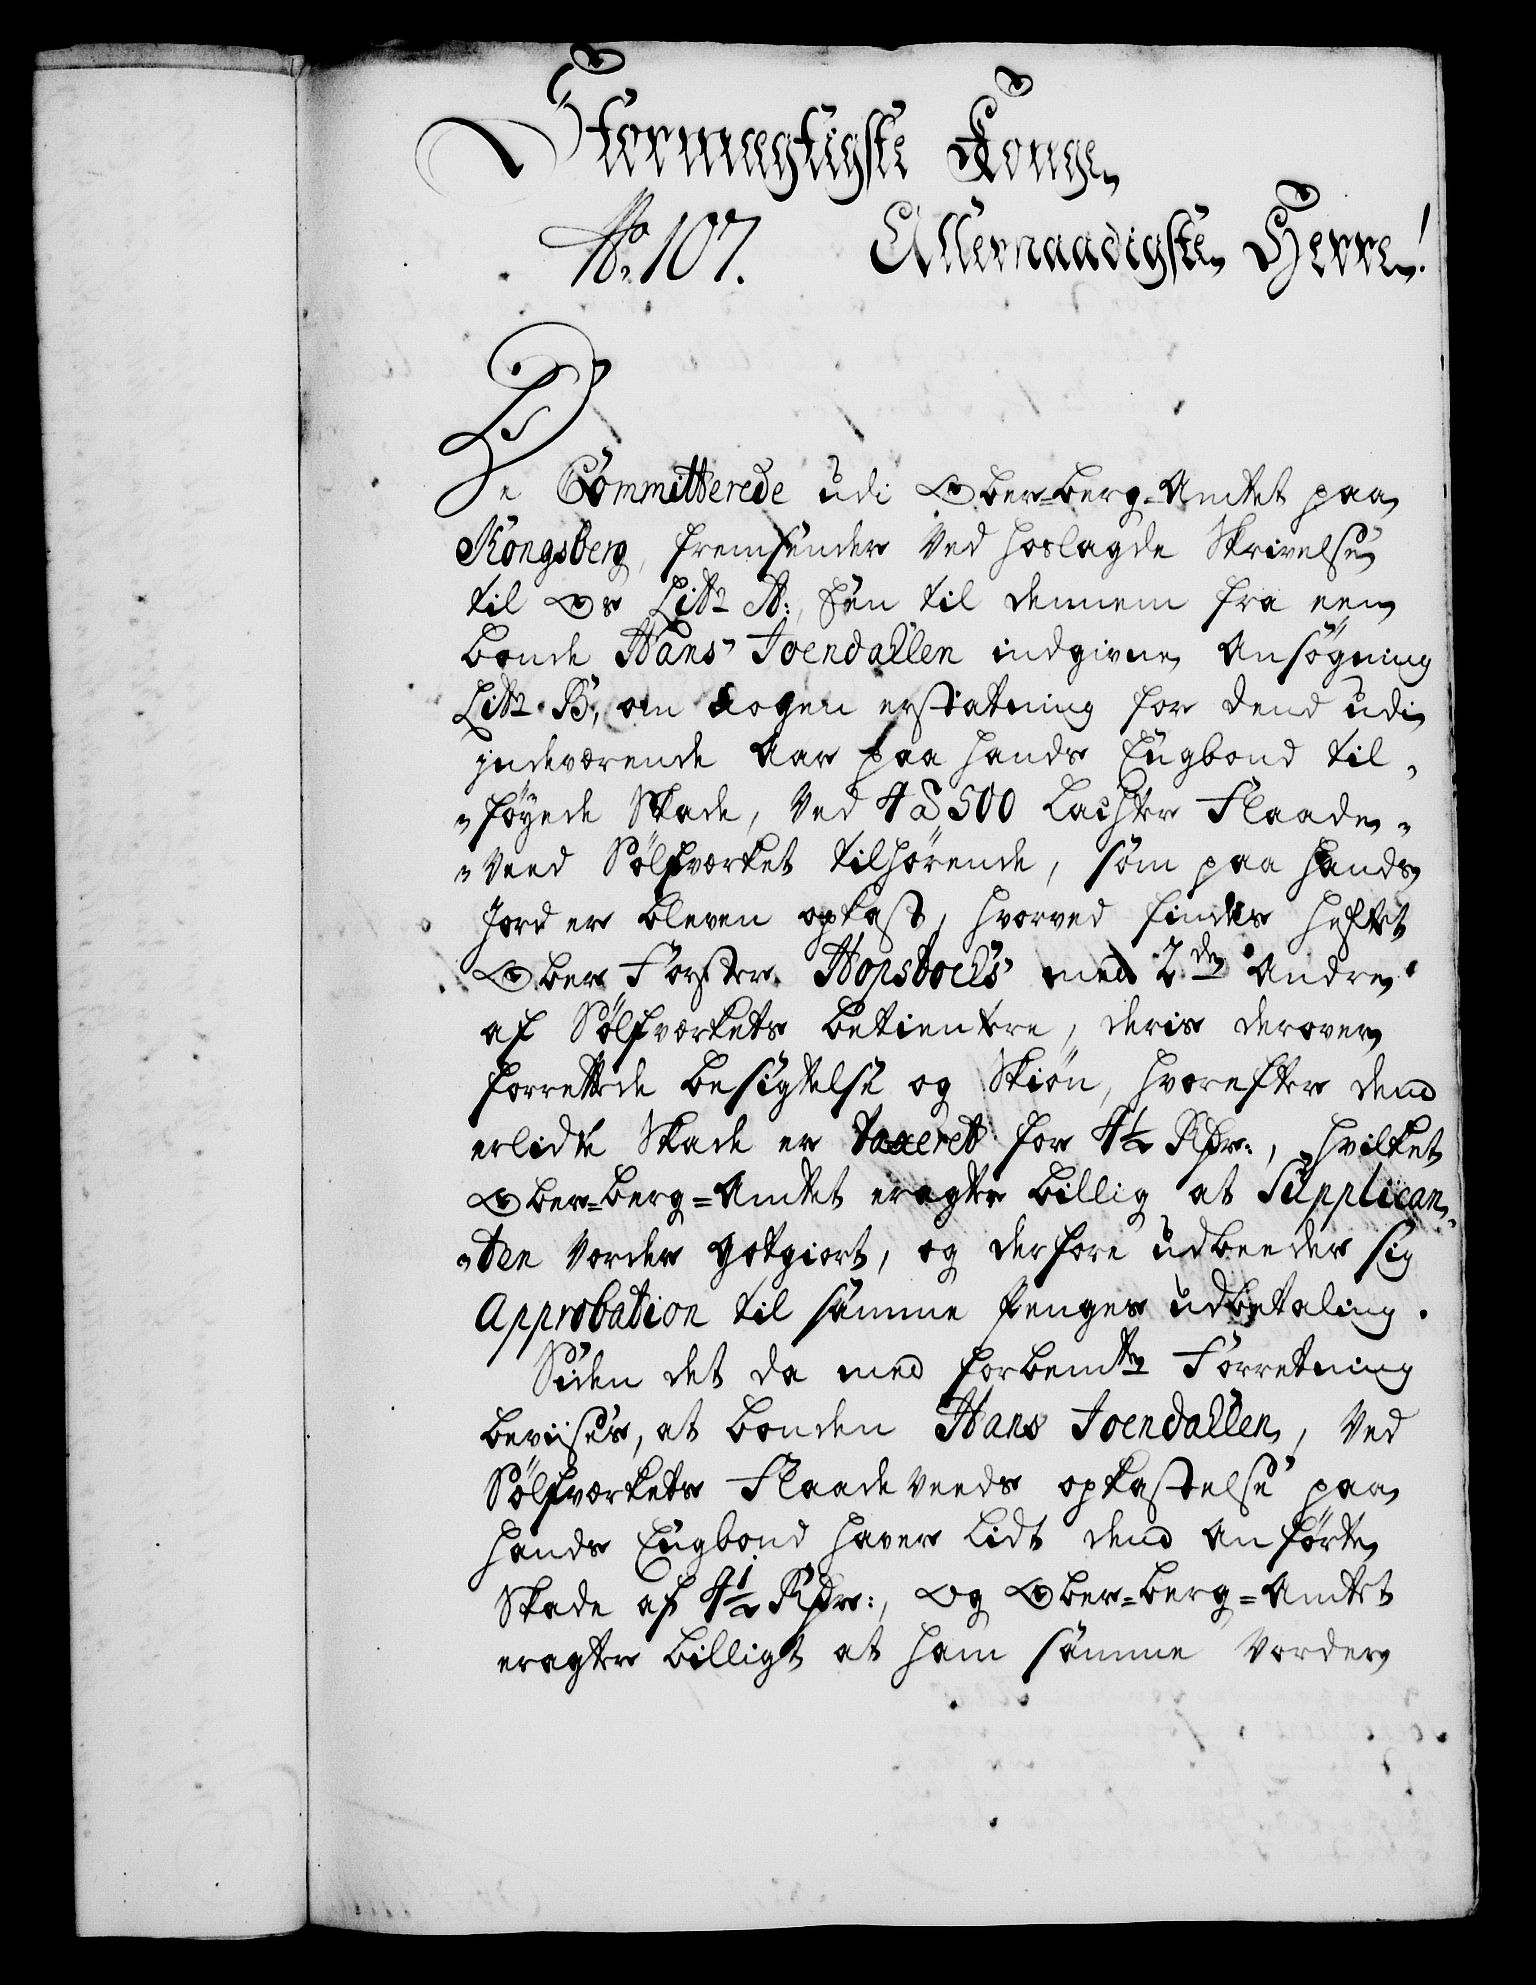 Stormægtigste Konge,
No. 107. Allernaadigste Herre!
De Committerede udi Ober-berg-Amtet paa
Kongsberg, fremsender ved hoslagde Skrivelse
til Os Litr A:, een til dennem fra een
bonde Hans Joendallen indgiven Ansögning
Litr B, om nogen erstatning for dend udi
indeværende Aar paa hands Engbond til-
-föyede Skade, ved 4 à 500 Lachter Flaade-
-veed Sölfværket tilhörende, som paa hands
Jord er bleven opkast, hvorved findes heftet
Ober Forster med 2de Andre
af Sölfværkets betientere, deris derover
forrettede besigtelse og Skiön, hvorefter dend
erlidte Skade er taxeret for 4½ Rdr:, hvilket
Ober-berg-Amtet eragter billig at Supplican-
-ten vorder gotgiort, og derfore udbeeder sig
Approbation til samme Penges udbetaling.
Siden det da med forbemte Forretning
beviises, at bonden Hans Joendallen, ved
Sölfværkets Flaadeveeds opkastelse paa
hands Engbond haver Lidt dend Anförte
Skade af 4½ Rdr:, og Ober-berg-Amtet
eragter billigt at ham samme vorder